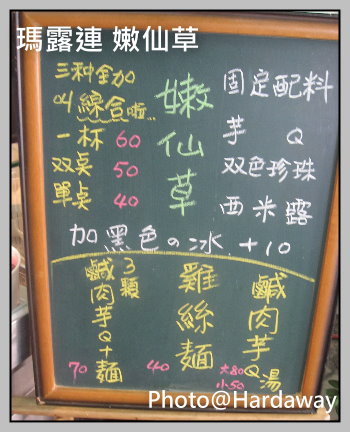 瑪露連 嫩仙草
三种全加
叫綜合啦
一杯 60
双桌 50
單桌 40
嫩仙草
固定配料
芋Q
双色珍珠
西米露
加黑色の冰.+10
鹹肉芋Q+麵
3顆
70
雞絲麵
40
鹹肉芋Q湯
大80
小50
Photo@Hardaway